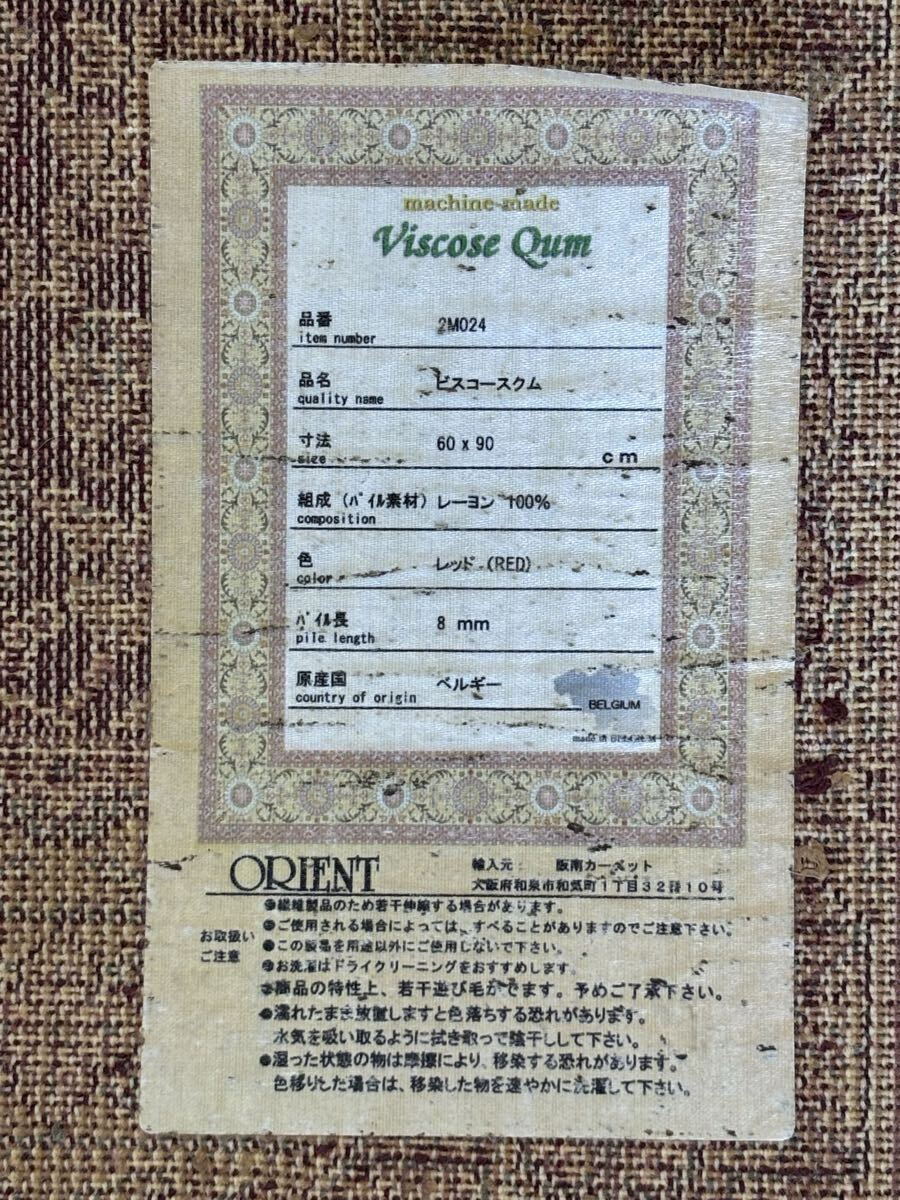 machine-made
Viscose Qum
品番 2M024
item number
品名 ビスコースクム
quality name
寸法 60 x 90 cm
size
組成 (パイル素材) レーヨン 100%
composition
色 レッド (RED)
color
パイル長 8 mm
pile length
原産国 ベルギー
country of origin BELGIUM
made in
ORIENT
輸入元: 阪南カーペット
大阪府和泉市和気町1丁目32番10号
お取扱い
ご注意
●繊維製品のため若干伸縮する場合があります。
●ご使用される場合によっては、すべることがありますのでご注意下さい。
●この製品を用途以外にご使用しないで下さい。
●お洗濯はドライクリーニングをおすすめします。
●商品の特性上、若干遊び毛がでます。予めご了承下さい。
●濡れたまま放置しますと色落ちする恐れがあります。
水気を吸い取るように拭き取って陰干しして下さい。
●湿った状態の物は摩擦により、移染する恐れがあります。
色移りした場合は、移染した物を速やかに洗濯して下さい。